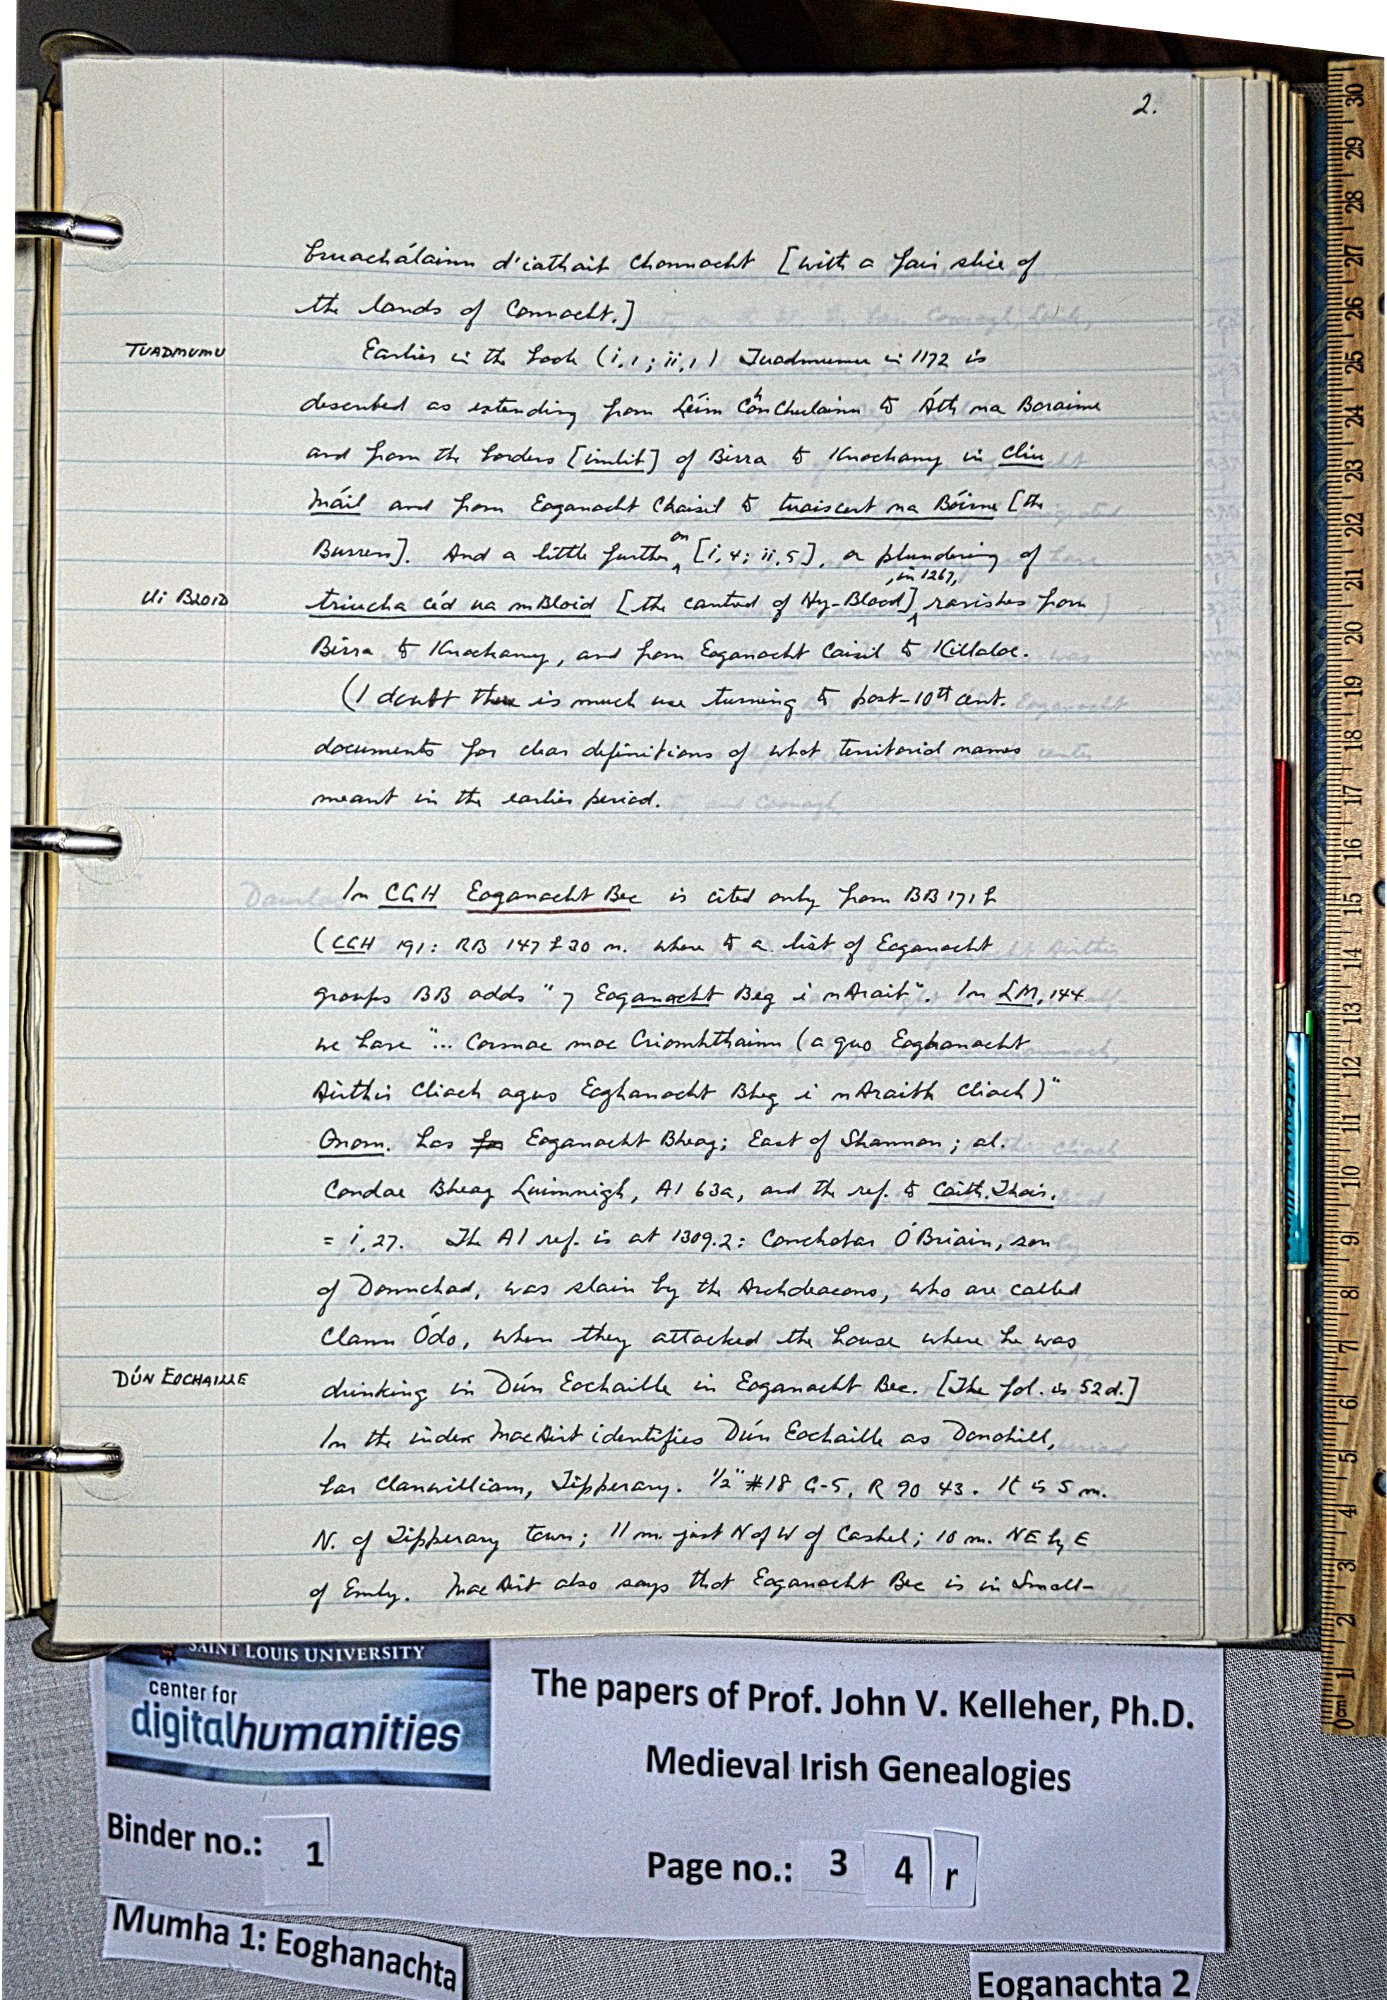 2.
bruachálainn d'iathaib Chonnacht [with a fair slice of
the lands of Connacht.]
TUADMUMU
Earlier in the book (i,1; ii,1) Tuadmumu in 1172 is
described as extending from Léim Chon Chulainn to Áth na Boraime
and from the borders [imlib] of Birra to Knockany in Cliu
Máil and from Eoganacht Chaisil to tuaiscert na Bóirne [the
Burren]. And a little further on [i,4; ii,5], a plundering of
Uí BLOID
triucha céd ua mBloid [the cantred of Hy-Blood] , in 1267, ravishes from
Birra to Knockany, and from Eoganacht Caisil to Killaloe.
(I doubt there is much use turning to post-10th cent.
documents for clear definitions of what territorial names
meant in the earlier period.
In CGH Eoganacht Bec is cited only from BB 171 b
(CGH 191: RB 147 b 30 n. where to a list of Eoganacht
groups BB adds "⁊ Eoganacht Beg i nArait". In LM, 144
we have "... Cormac mac Criomhthainn (a quo Eoghanacht
Airthir Cliach agus Eoghanacht Bheg i nAraibh Cliach)"
Onom. has for Eoganacht Bheag; East of Shannon; al.
Condae Bheag Luimnigh, AI 63a, and the ref. to Caith. Thoir.
= i, 27. The AI ref. is at 1309.2: Conchobar Ó Briain, son
of Donnchad, was slain by the Archdeacons, who are called
Clann Ódo, when they attacked the house where he was
DÚN EOCHAILLE
drinking in Dún Eochaille in Eoganacht Bec. [The fol. is 52d.]
In the index MacAirt identifies Dún Eochaille as Donohill,
bar Clanwilliam, Tipperary. 1/2" #18 G-5, R 90 43. It is 5 m.
N. of Tipperary town; 11 m. just N of W of Cashel; 10 m. NE by E
of Emly. MacAirt also says that Eoganacht Bec is in Small-
30
29
28
27
26
25
24
23
22
21
20
19
18
17
16
15
14
13
12
11
10
9
8
7
6
5
4
3
2
1
0cm
SAINT LOUIS UNIVERSITY
center for
digitalhumanities
The papers of Prof. John V. Kelleher, Ph.D.
Medieval Irish Genealogies
Binder no.: 1
Page no.: 3 4 r
Mumha 1: Eoghanachta
Eoganachta 2